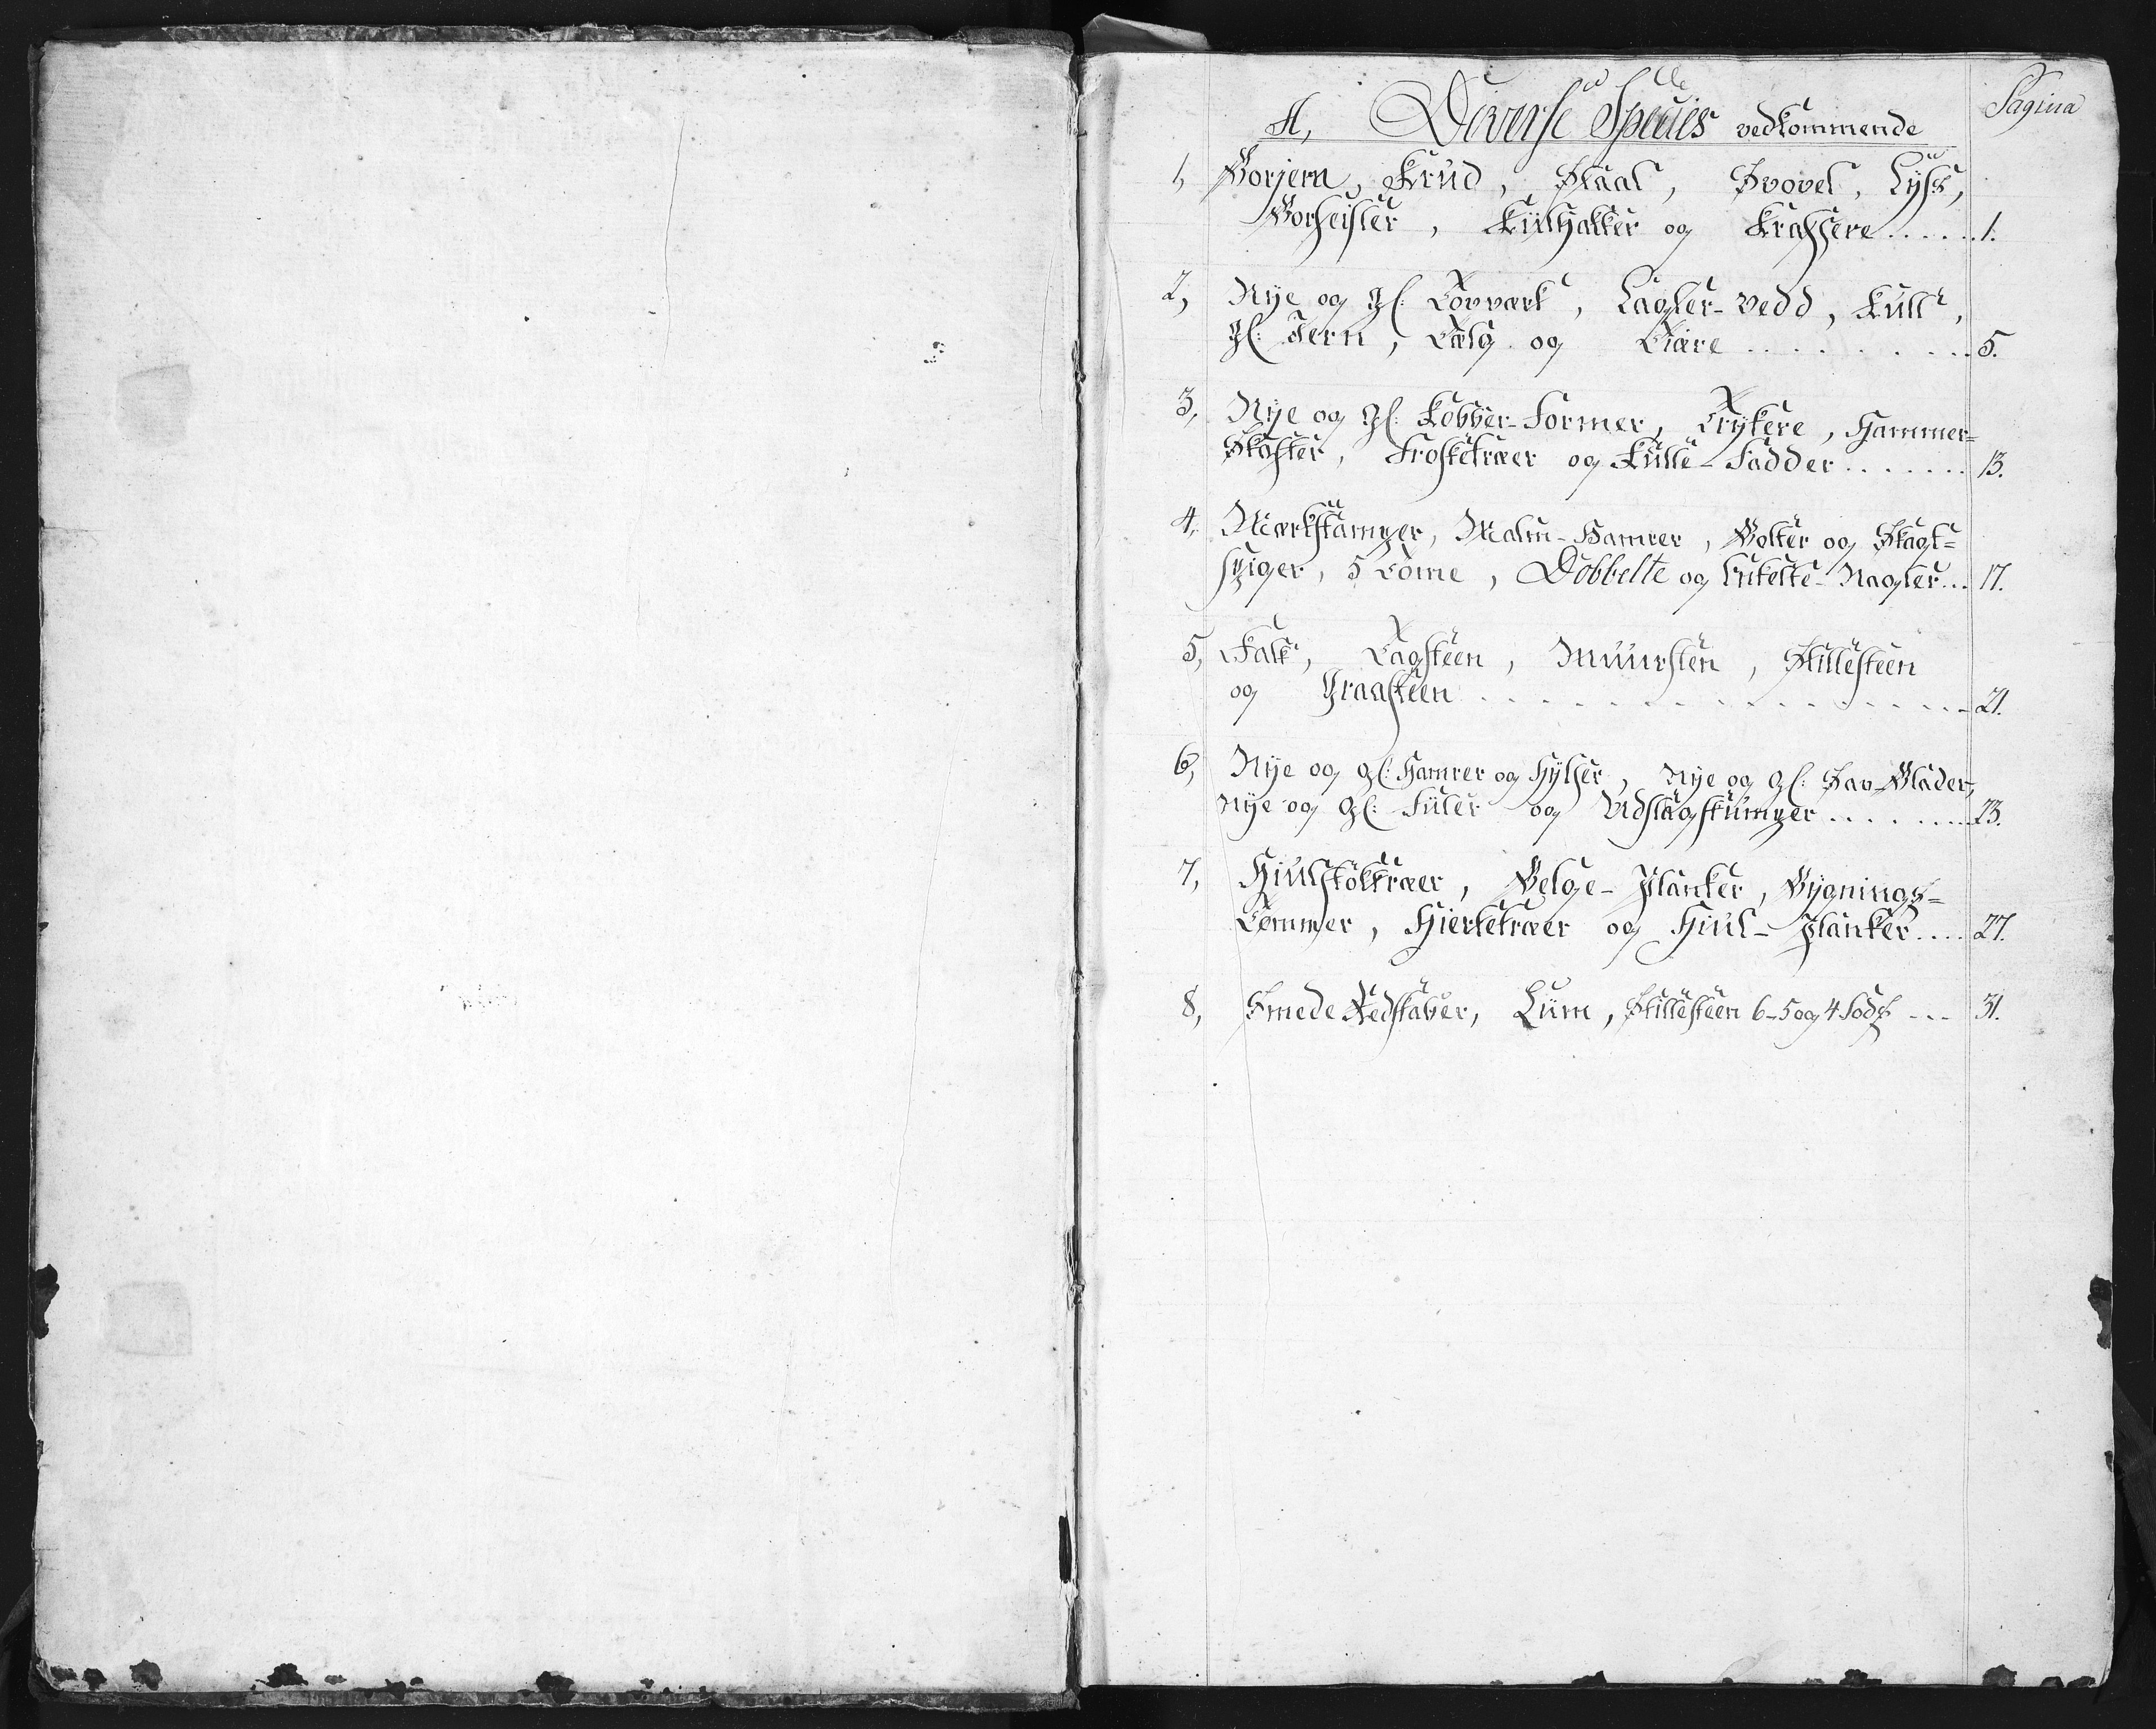 Pagina
A, Diverse Specier vedkommende
1, Borjern, Krud, Staal, Svovel, Lyss,
Borfeisler, Kulhakker og Krassere ..... 1.
2, Nye og gl: Tovværk, Lagter-Vedd, Kull,
gl: Jern, Tælg og Tiære ......... 5.
3, Nye og gl: Kobber-Former, Trykere, Hammer-
Skafter, Froskետræer og Kulle-Fadder ....... 13.
4, Mærkstamper, Malm-Hamrer, Bolter og Slagt-
spiger, 5 Tome, Dobbelte og Enkelte-Nagler... 17.
5, Kalk, Tagsteen, Muursten, Stillesteen
og Graasteen ................. 21.
6, Nye og gl: Hamrer og Hylser, Nye og gl: Sav-Blader,
Nye og gl: Filer og Udslagskumper ........ 23.
7, Hiulstoktræer, Belge-Planker, Bygnings-
Tømmer, Hiertetræer og Hiul-Planker .... 27.
8, Smede Redskaber, Lim, Stillesteen 6-5 og 4 Fods --- 31.